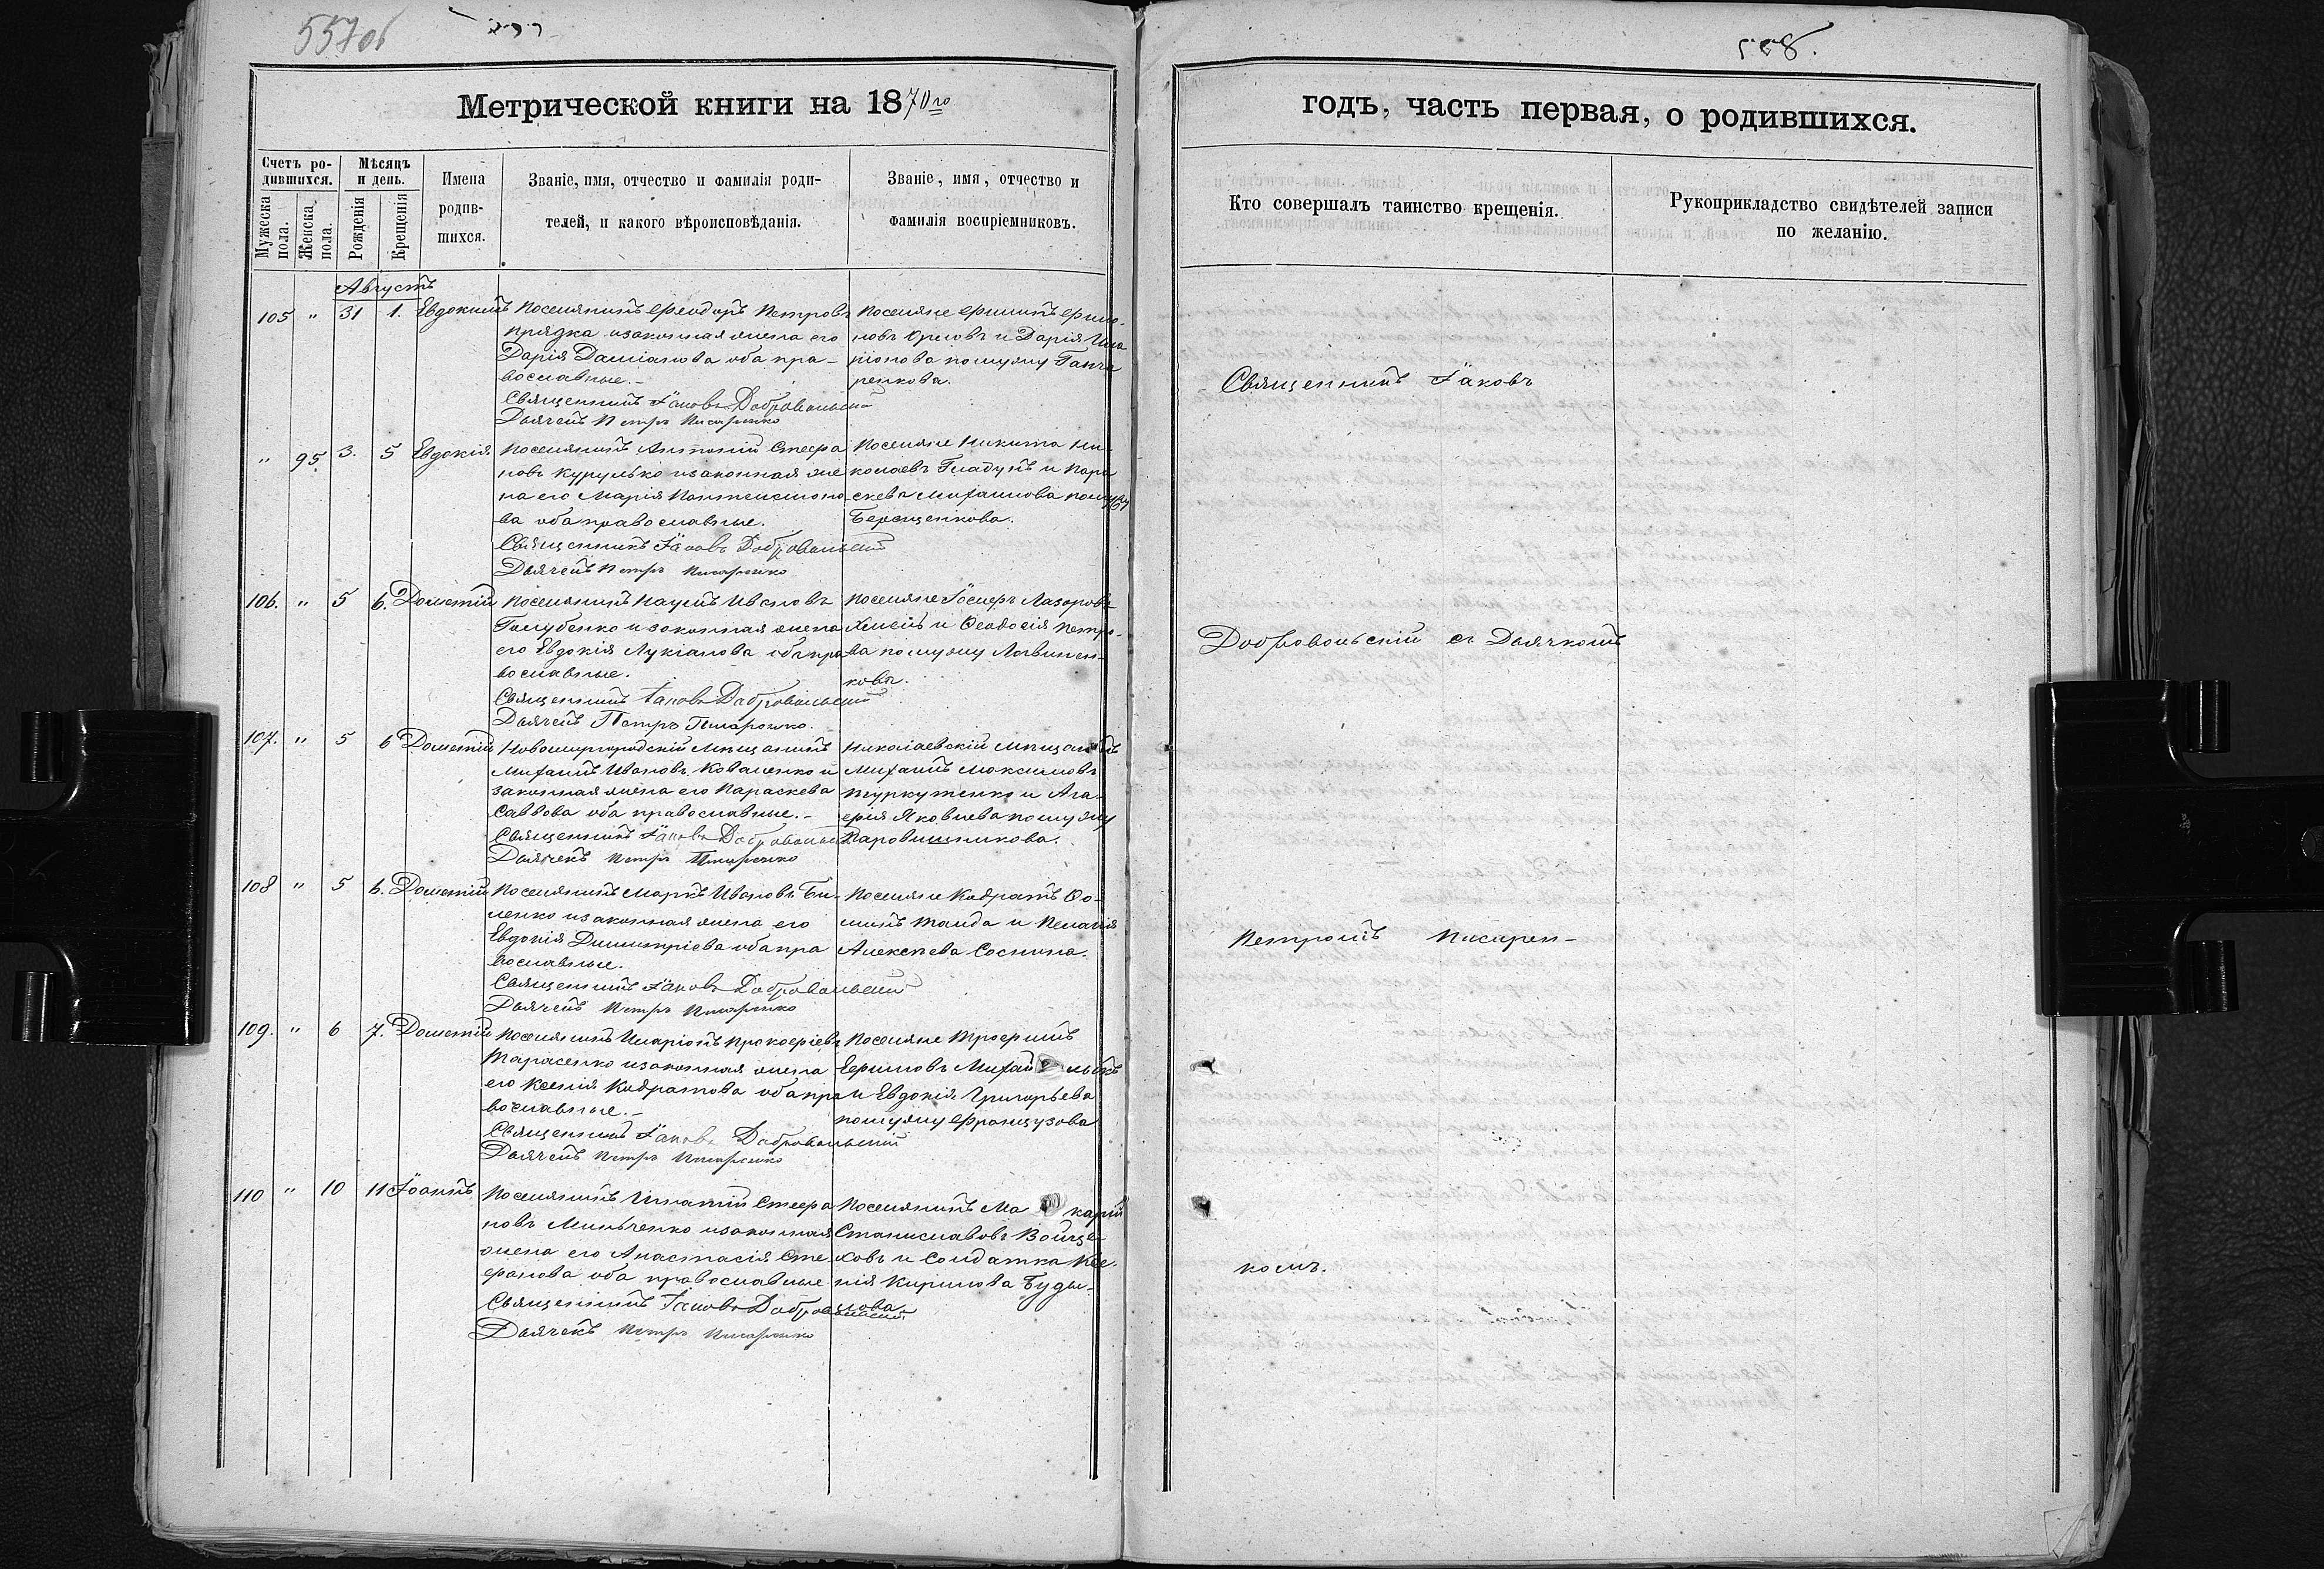 557об
558.
Метрической книги на 1870го
годъ, часть первая, о родившихся.
Счетъ родившихся.
Мужеска пола.
Женска пола.
Мѣсяцъ и день.
Рожденія
Крещенія
Имена
родив-
шихся.
Званіе, имя, отчество и фамилія роди-
телей, и какого вѣроисповѣданія.
Званіе, имя, отчество и
фамилія воспріемниковъ.
Кто совершалъ таинство крещенія.
Рукоприкладство свидѣтелей записи
по желанію.
Августъ
105 " 31 1. Евдокимъ
Поселянинъ Феодоръ Петровъ
Прядка и законная жена его
Дарія Даміанова оба пра-
вославные.-
Священникъ Іаковъ Добровольскій
Дьячекъ Петръ Писаренко
Поселяне
Орловъ и Дарія Ила
ріонова по мужу Ганча
ренкова.
" 95. 3. 5 Евдокія.
Поселянинъ Антоній Стефа
новъ Курулько и законная же
на его Марія Пантелимоно
ва оба православные.
Священникъ Іаковъ Добровольскій
Дьячекъ Петръ Писаренко
Поселяне Никита Ни-
колаевъ Гладунъ и Пара
скева Михаилова по мужу
Берещенкова.
106. " 5 6. Дометій
Поселянинъ Наумъ Ивановъ
Голубенко и законная жена
его Евдокія Лукіанова оба пра
вославные.
Священникъ Іаковъ Добровольскій
Дьячекъ Петръ Писаренко.
Поселяне Іосифъ Лазоровъ
и Феодосія Петро-
ва по мужу Литвинен-
кова.
107. " 5 6 Дометій
Новомиргородскій Мѣщанинъ
Михаилъ Ивановъ Коваленко и
законная жена его Параскева
Саввова оба православные.-
Священникъ Іаковъ Добровольскій
Дьячекъ Петръ Писаренко
Николаевскій Мѣщанинъ
Михаилъ Максимовъ
Туркутенко и Ага-
фія Яковлева по мужу
Паровишникова.
108 " 5 6. Дометій
Поселянинъ Маркъ Ивановъ Би-
ленко и законная жена его
Евдокія Димитріева оба пра
вославные.
Священникъ Іаковъ Добровольскій
Дьячекъ Петръ Писаренко
Поселяне Кодратъ Фо-
минъ и Пелагія
Алексѣева Соснина.
109. " 6 7. Дометій
Поселянинъ Иларіонъ Прокофіевъ
Тарасенко и законная жена
его Ксенія Кодратова оба пра
вославные.-
Священникъ Іаковъ Добровольскій
Дьячекъ Петръ Писаренко
Поселяне Трофимъ
и Евдокія Григорьева
по мужу Французова
110 " 10 11 Іоаннъ.
Поселянинъ Игнатій Стефа
новъ Миньченко и законная
жена его Анастасія Сте-
фанова оба православные
Священникъ Іаковъ Добровольскій
Дьячекъ Петръ Писаренко
Поселянинъ Макарій
Станиславовъ Войце-
ховъ и Солдатка Ксе-
нія Кирилова Буды-
лова.
Священникъ Іаковъ
Добровольскій съ Дьячкомъ
Петромъ Писарен-
комъ.